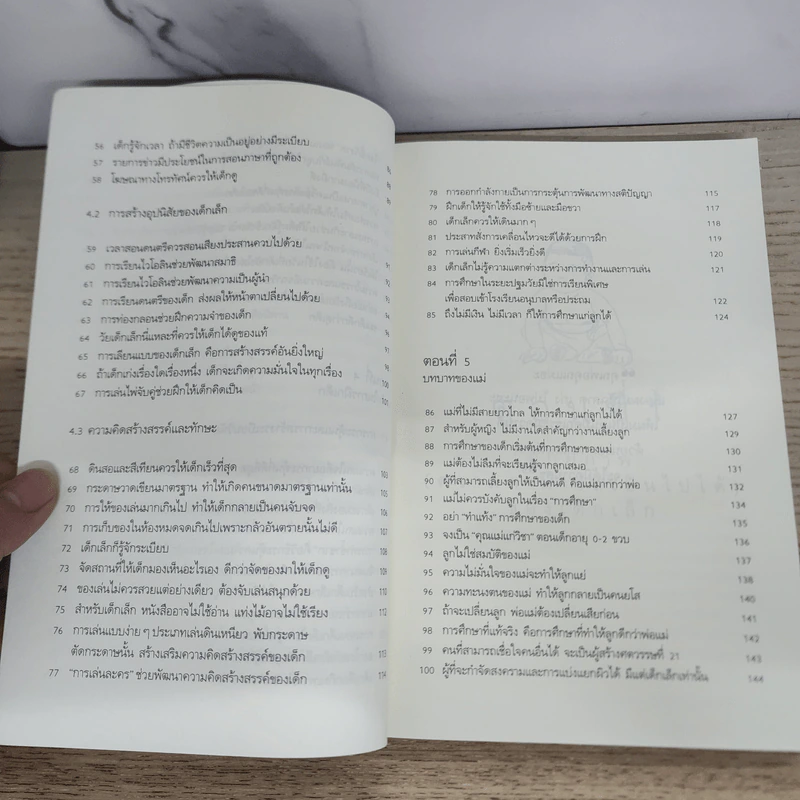 56 เด็กรู้จักเวลา ถ้ามีชีวิตความเป็นอยู่อย่างมีระเบียบ
57 รายการข่าวมีประโยชน์ในการสอนภาษาที่ถูกต้อง
58 โฆษณาทางโทรทัศน์ควรให้เด็กดู
4.2 การสร้างอุปนิสัยของเด็กเล็ก
59 เวลาสอนดนตรีควรสอนเสียงประสานควบไปด้วย
60 การเรียนไวโอลินช่วยพัฒนาสมาธิ 91
61 การเรียนไวโอลินช่วยพัฒนาความเป็นผู้นำ
62 การเรียนดนตรีของเด็ก ส่งผลให้หน้าตาเปลี่ยนไปด้วย
63 การท่องกลอนช่วยฝึกความจำของเด็ก
64 วัยเด็กเล็กนี่แหละที่ควรให้เด็กได้ดูของแท้
65 การเลียนแบบของเด็กเล็ก คือการสร้างสรรค์อันยิ่งใหญ่
66 ถ้าเด็กเก่งเรื่องใดเรื่องหนึ่ง เด็กจะเกิดความมั่นใจในทุกเรื่อง 100
67 การเล่นไพ่จับคู่ช่วยฝึกให้เด็กคิดเป็น 101
4.3 ความคิดสร้างสรรค์และทักษะ
68 ดินสอและสีเทียนควรให้เด็กเร็วที่สุด 103
69 กระดาษวาดเขียนมาตรฐาน ทำให้เกิดคนขนาดมาตรฐานเท่านั้น 105
70 การให้ของเล่นมากเกินไป ทำให้เด็กกลายเป็นคนจับจด 106
71 การเก็บของในห้องหมดจดเกินไปเพราะกลัวอันตรายนั้นไม่ดี 107
72 เด็กเล็กก็รู้จักระเบียบ 108
73 จัดสถานที่ให้เด็กมองเห็นอะไรเอง ดีกว่าจัดของมาให้เด็กดู 109
74 ของเล่นไม่ควรสวยแต่อย่างเดียว ต้องจับเล่นสนุกด้วย 110
75 สำหรับเด็กเล็ก หนังสืออาจไม่ใช้อ่าน แท่งไม้อาจไม่ใช้เรียง 112
76 การเล่นแบบง่าย ๆ ประเภทเล่นดินเหนียว พับกระดาษ
ตัดกระดาษนั้น สร้างเสริมความคิดสร้างสรรค์ของเด็ก 113
77 "การเล่นละคร" ช่วยพัฒนาความคิดสร้างสรรค์ของเด็ก 114
78 การออกกำลังกายเป็นการกระตุ้นการพัฒนาทางสติปัญญา 115
79 ฝึกเด็กให้รู้จักใช้ทั้งมือซ้ายและมือขวา 117
80 เด็กเล็กควรให้เดินมาก ๆ 118
81 ประสาทสั่งการเคลื่อนไหวจะดีได้ด้วยการฝึก 119
82 การเล่นกีฬา ยิ่งเริ่มเร็วยิ่งดี 120
83 เด็กเล็กไม่รู้ความแตกต่างระหว่างการทำงานและการเล่น 121
84 การศึกษาในระยะปฐมวัยมิใช่การเรียนพิเศษ
เพื่อสอบเข้าโรงเรียนอนุบาลหรือประถม 122
85 ถึงไม่มีเงิน ไม่มีเวลา ก็ให้การศึกษาแก่ลูกได้ 124
ตอนที่ 5
บทบาทของแม่
86 แม่ที่ไม่มีสายยาวไกล ให้การศึกษาแก่ลูกไม่ได้ 127
87 สำหรับผู้หญิง ไม่มีงานใดสำคัญกว่างานเลี้ยงลูก 129
88 การศึกษาของเด็กเริ่มต้นที่การศึกษาของแม่ 130
89 แม่ต้องไม่ลืมที่จะเรียนรู้จากลูกเสมอ 131
90 ผู้ที่สามารถเลี้ยงลูกให้เป็นคนดี คือแม่มากกว่าพ่อ 132
91 แม่ไม่ควรบังคับลูกในเรื่อง "การศึกษา" 134
92 อย่า "ทำแท้ง" การศึกษาของเด็ก 135
93 จงเป็น "คุณแม่แก้วิชา" ตอนเด็กอายุ 0-2 ขวบ 136
94 ลูกไม่ใช่สมบัติของแม่ 137
95 ความไม่มั่นใจของแม่จะทำให้ลูกแย่ 138
96 ความทะนงตนของแม่ ทำให้ลูกกลายเป็นคนยโส 140
97 ถ้าจะเปลี่ยนลูก พ่อแม่ต้องเปลี่ยนเสียก่อน 141
98 การศึกษาที่แท้จริง คือการศึกษาที่ทำให้ลูกดีกว่าพ่อแม่ 142
99 คนที่สามารถเชื่อใจคนอื่นได้ จะเป็นผู้สร้างศตวรรษที่ 21 143
100 ผู้ที่จะกำจัดสงครามและการแบ่งแยกผิวได้ มีแต่เด็กเล็กเท่านั้น 144